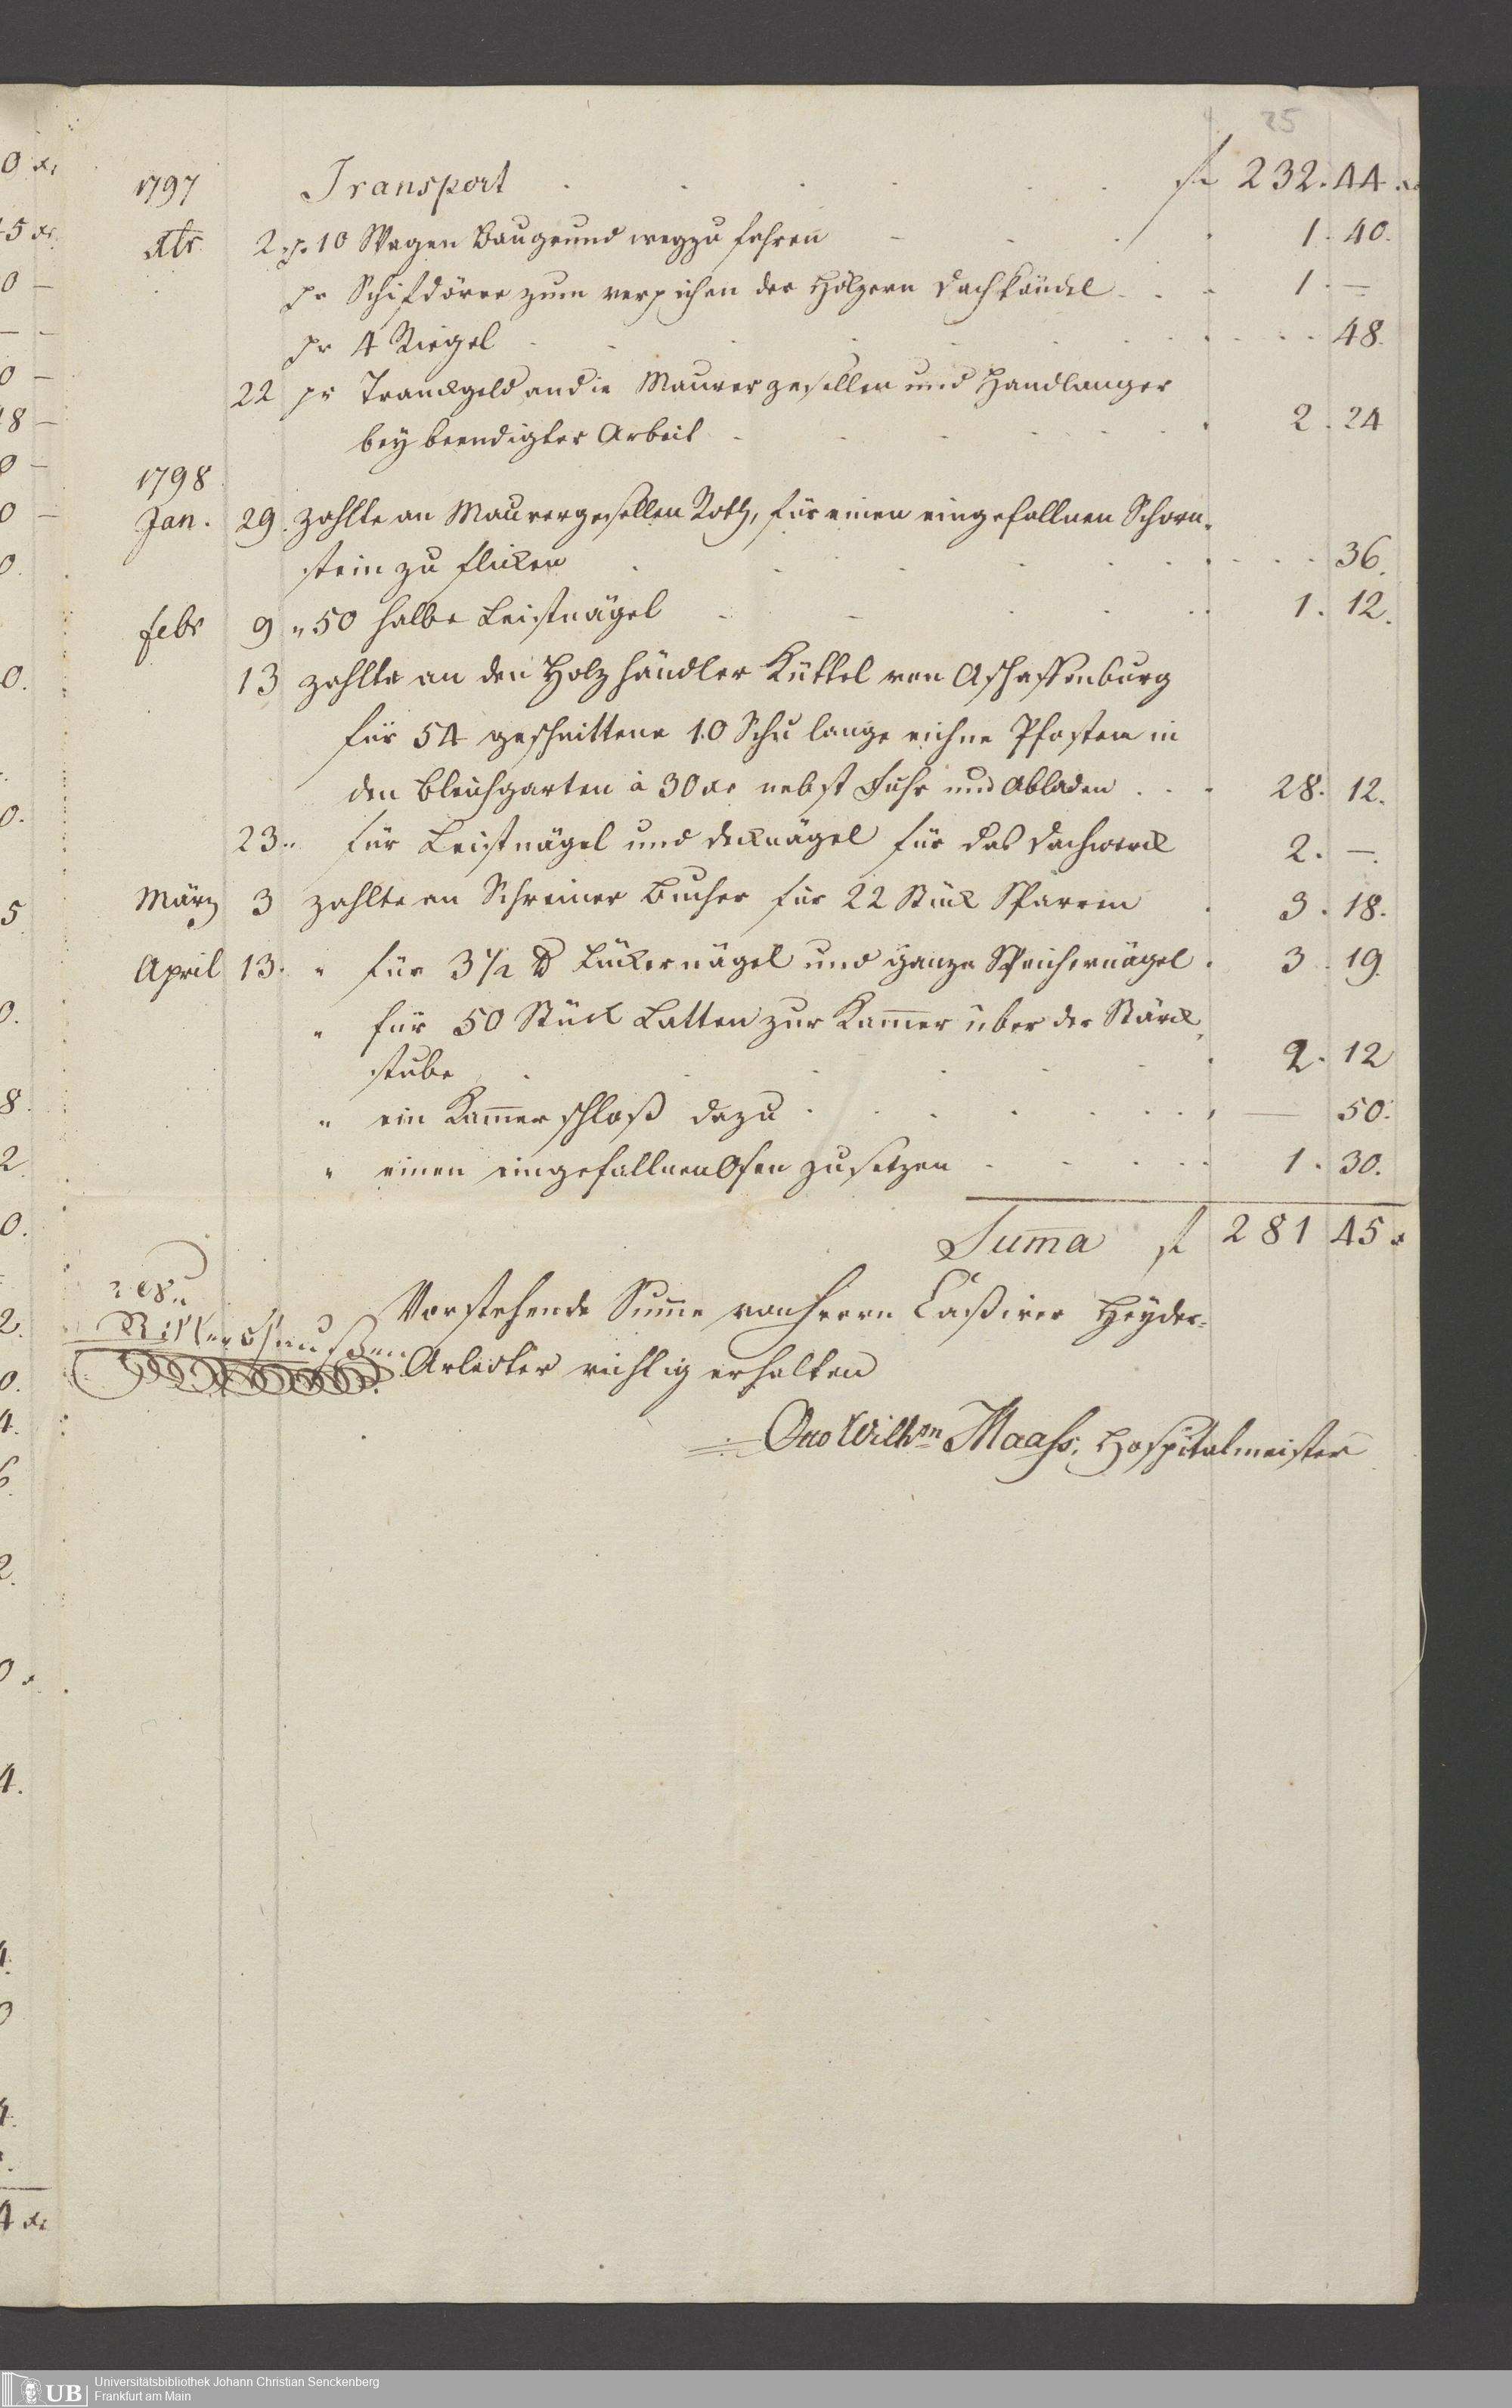 25
1797 Transport f 232. 44 xr
Xbr 2 pr 10 Wagen Baugrund wegzufahren 1. 40.
pr Schifdörre zum verpichen der Hölzern Dachkändel 1. —
pr 4 Riegel 48.
22 pr Tranckgeld an die Maurergesellen und Handlanger
bey beendigter Arbeit 2. 24
1798
Jan. 29. zahlte an Maurergesellen Roth, für einen eingefallnen Schorn-
stein zu flicken 36.
Febr 9 " 50 halbe Leistnägel 1. 12.
13 zahlte an den Holzhändler Küttel von Aschaffenburg
für 54 geschnittene 10 Schu lange eichne Pfosten in
den Bleichgarten à 30 xr nebst Fuhr und Abladen 28. 12.
23. " für Leistnägel und decknägel für das Dachwerck 2. —.
März 3 zahlte an Schreiner Bucher für 22 Stück Sparren 3. 18.
April 13. " für 3 1/2 ℔ Lückernägel und ganze Speichernägel 3. 19.
" für 50 Stück Latten zur Kam̄er über der Stärck-
stube 2. 12
" ein Kam̄erschloß dazu — 50.
" einen eingefallnen Ofen zu setzen 1. 30.
Sum̄a f 281 45 x
Vorstehende Sum̄e von Herrn Cassirer Heyder-
Arlecter richtig erhalten
Otto Wilhm Maass, Hospitalmeister
UB Universitätsbibliothek Johann Christian Senckenberg
Frankfurt am Main